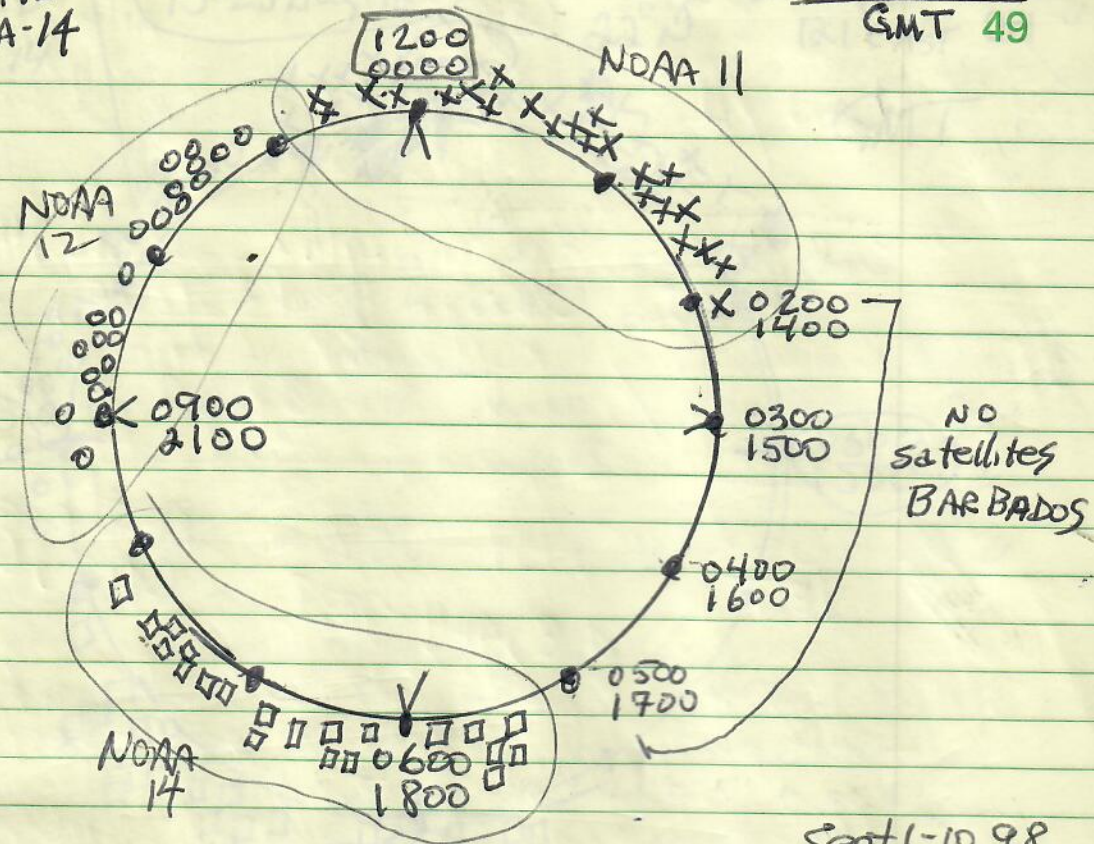 A-14
GMT 49
1200
0000
NOAA 11
NOAA
12
0200
1400
0900
2100
0300
1500
NO
satellites
BARBADOS
0400
1600
0500
1700
NOAA
14
0600
1800
Sept 1-10 98